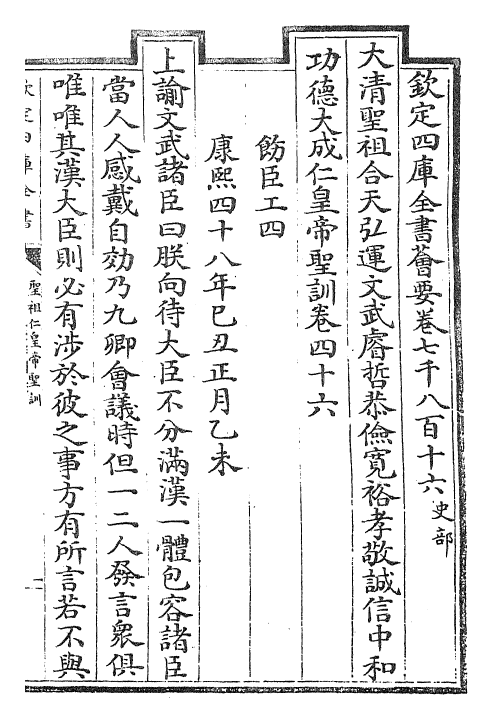 欽定四庫全書薈要卷七千八百十六史部
大清聖祖合天弘運文武睿哲恭儉寬裕孝敬誠信中和
功德大成仁皇帝聖訓卷四十六
飭臣工四
康熙四十八年巳丑正月乙未
上諭文武諸臣曰朕向待大臣不分滿漢一體包容諸臣
當人人感戴自効乃九卿會議時但一二人發言衆俱
唯唯其漢大臣則必有涉於彼之事方有所言若不與
欽定四庫全書
聖祖仁皇帝聖訓